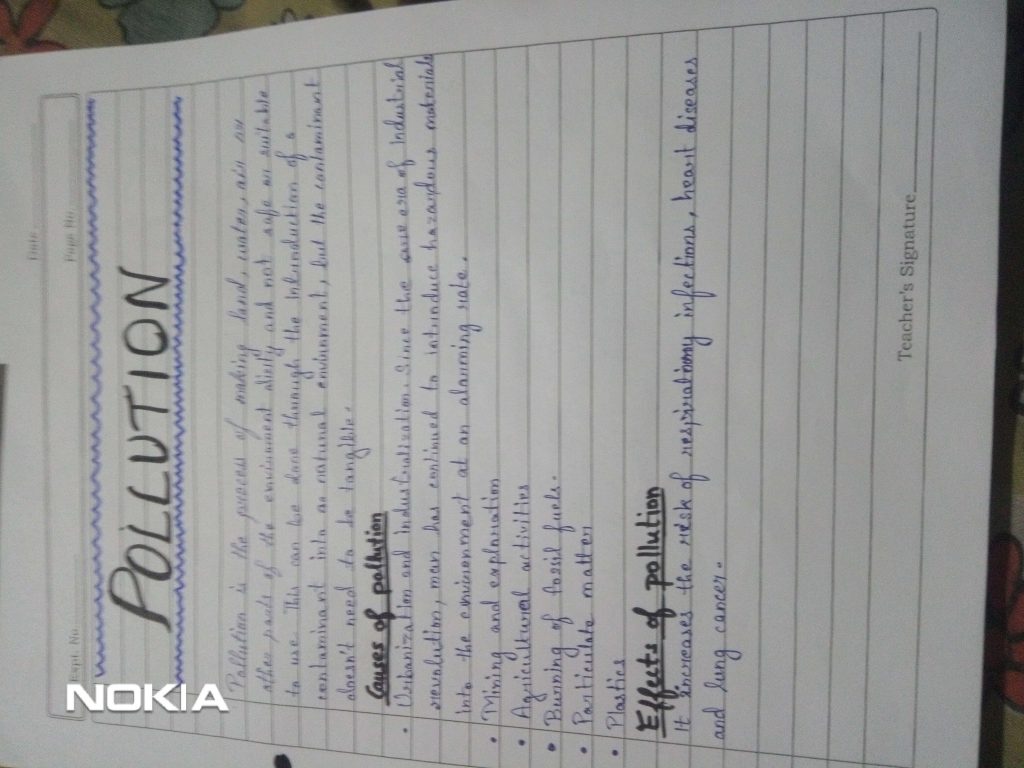 Date
Page No.
Expt. No.
POLLUTION
Pollution is the process of making land, water, air or
other parts of the enviroment dirty and not safe or suitable
to use. This can be done through the introduction of a
contaminant into a natural enviornment, but the contaminant
doesn't need to be tangible.
Causes of pollution
• Urbanization and industrialization: Since the era of Industrial
revolution, man has continued to introduce hazardous materials
into the environment at an alarming rate.
• Mining and explariation
• Agricultural activities
• Burning of fossil fuels.
• Particulate matter
• Plastics
Effects of pollution
It increases the risk of respirationy infections, heart diseases
and lung cancer.
Teacher's Signature
NOKIA